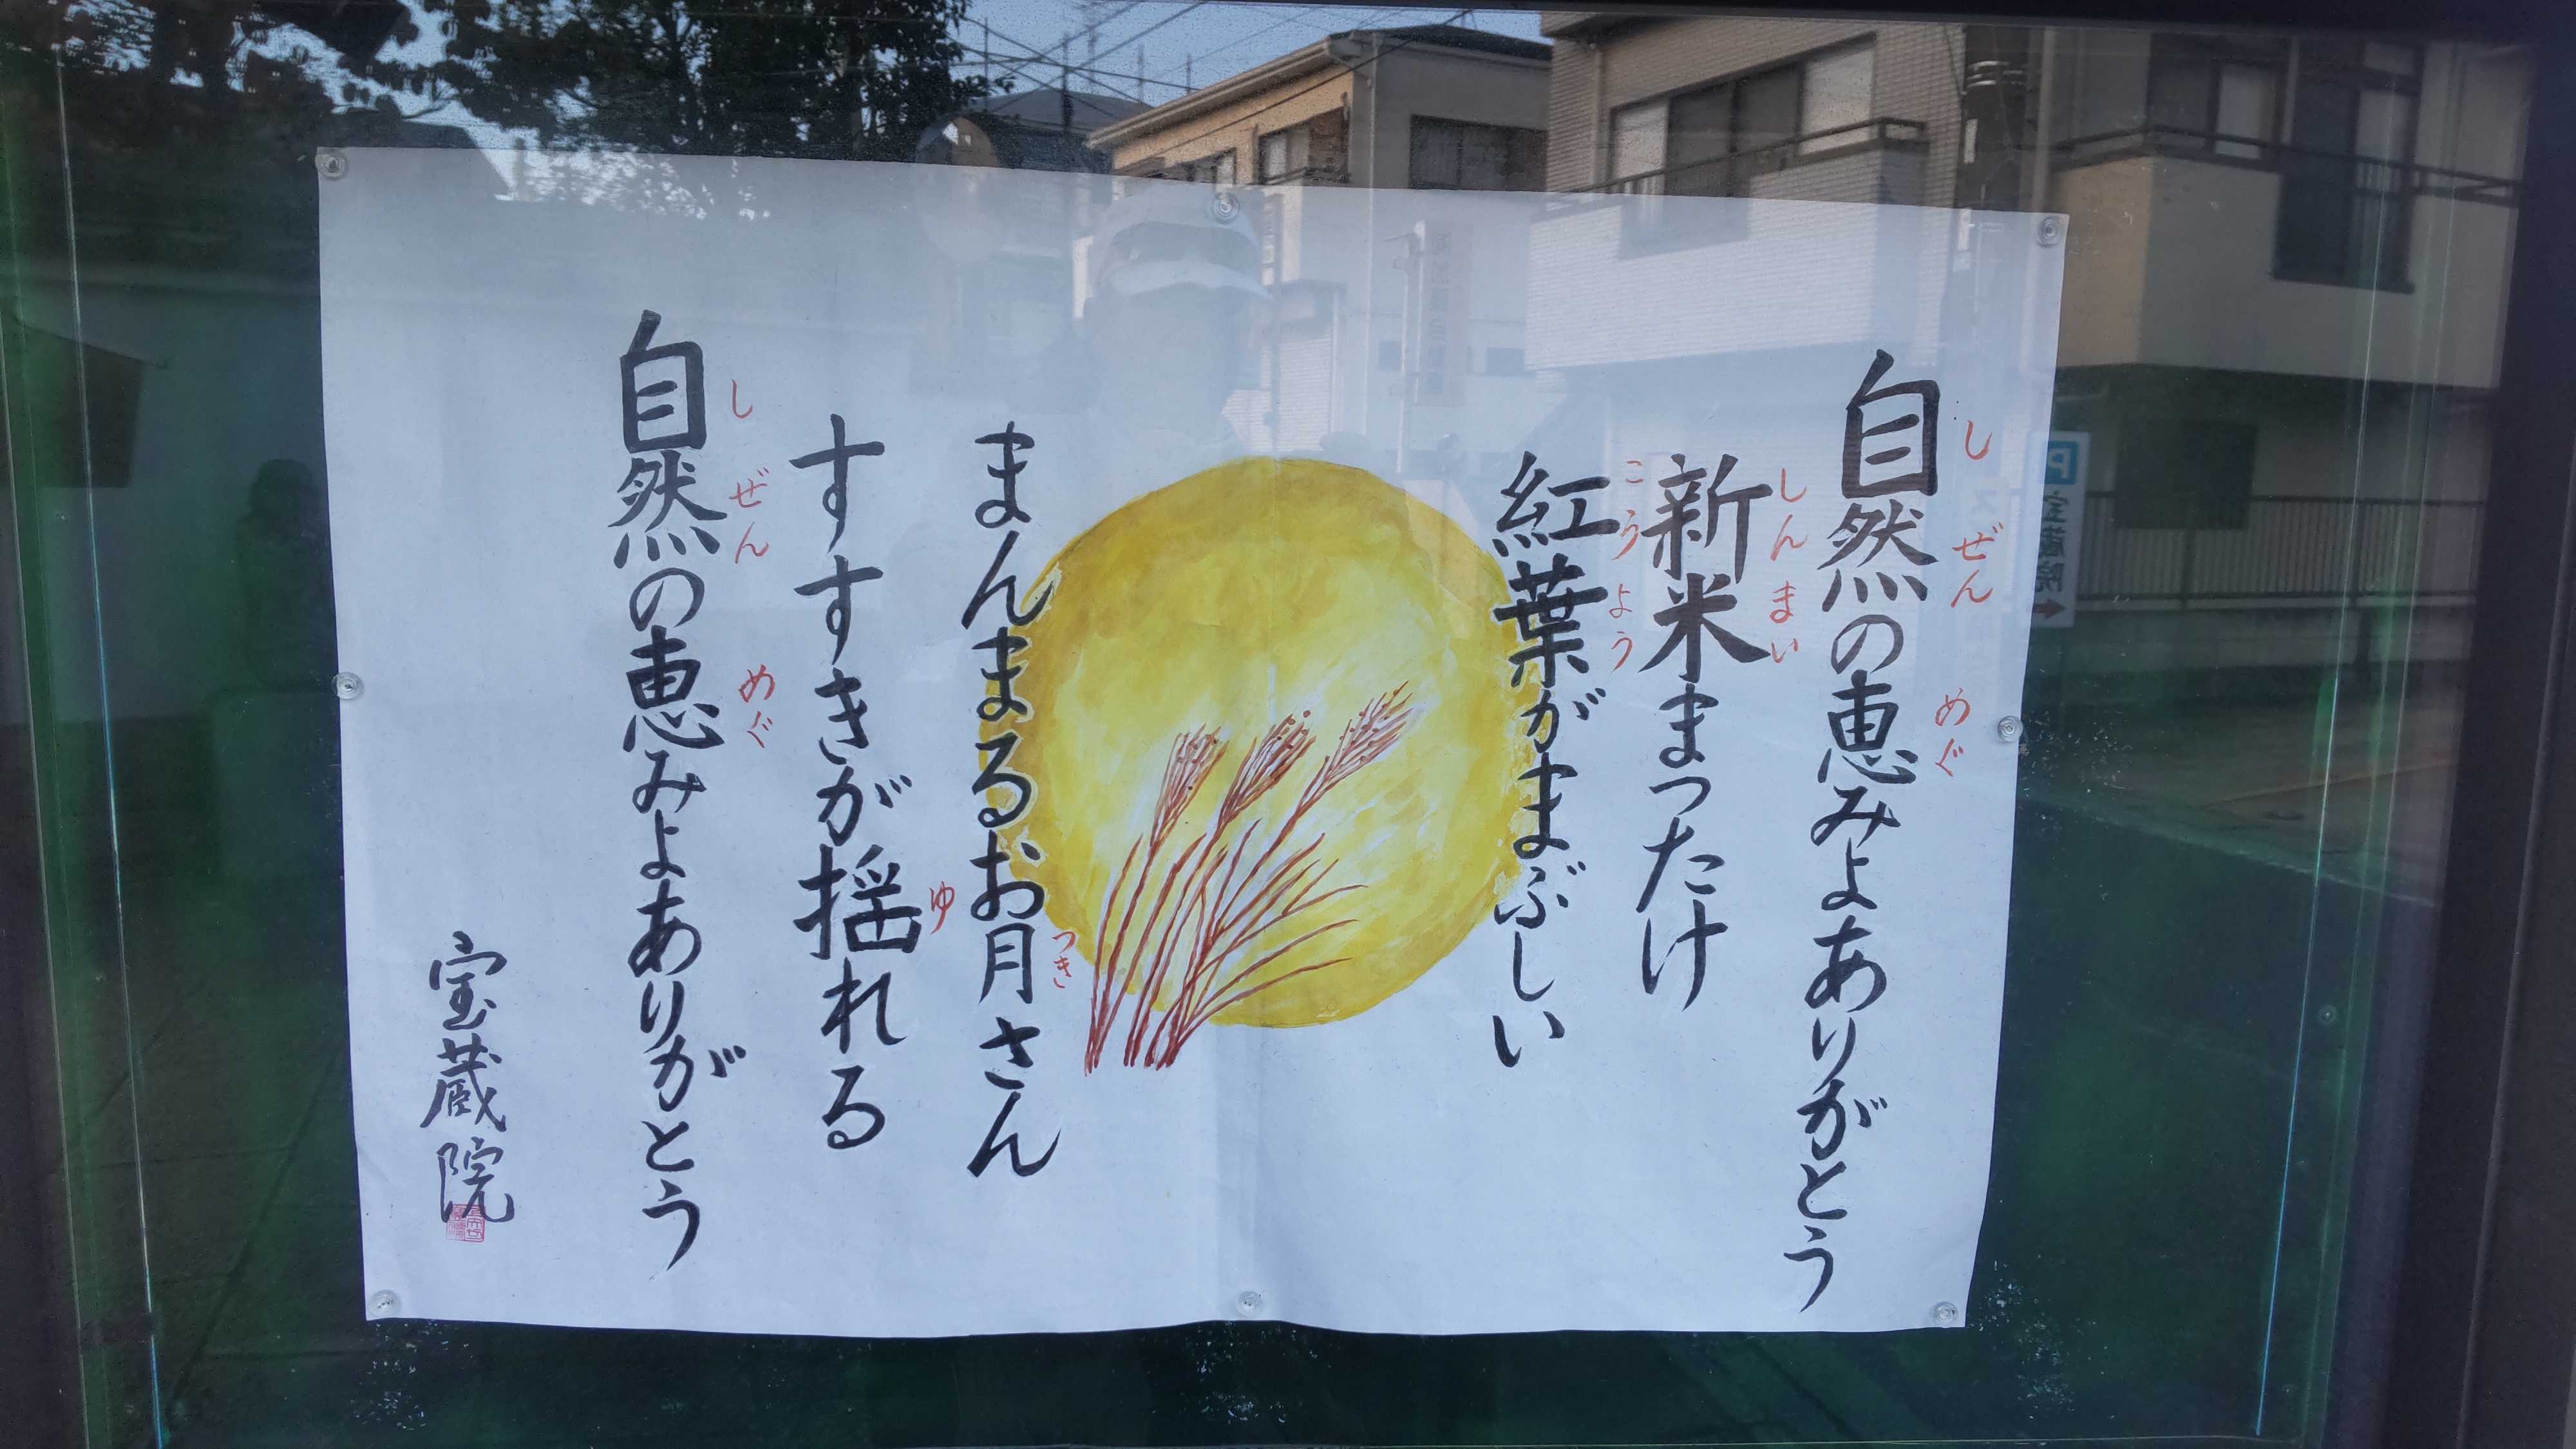 自然の恵みよありがとう
しぜん めぐ
新米まったけ
しんまい
紅葉がまぶしい
こうよう
まんまるお月さん
つき
すすきが揺れる
ゆ
自然の恵みよありがとう
しぜん めぐ
宝蔵院
P 宝蔵院